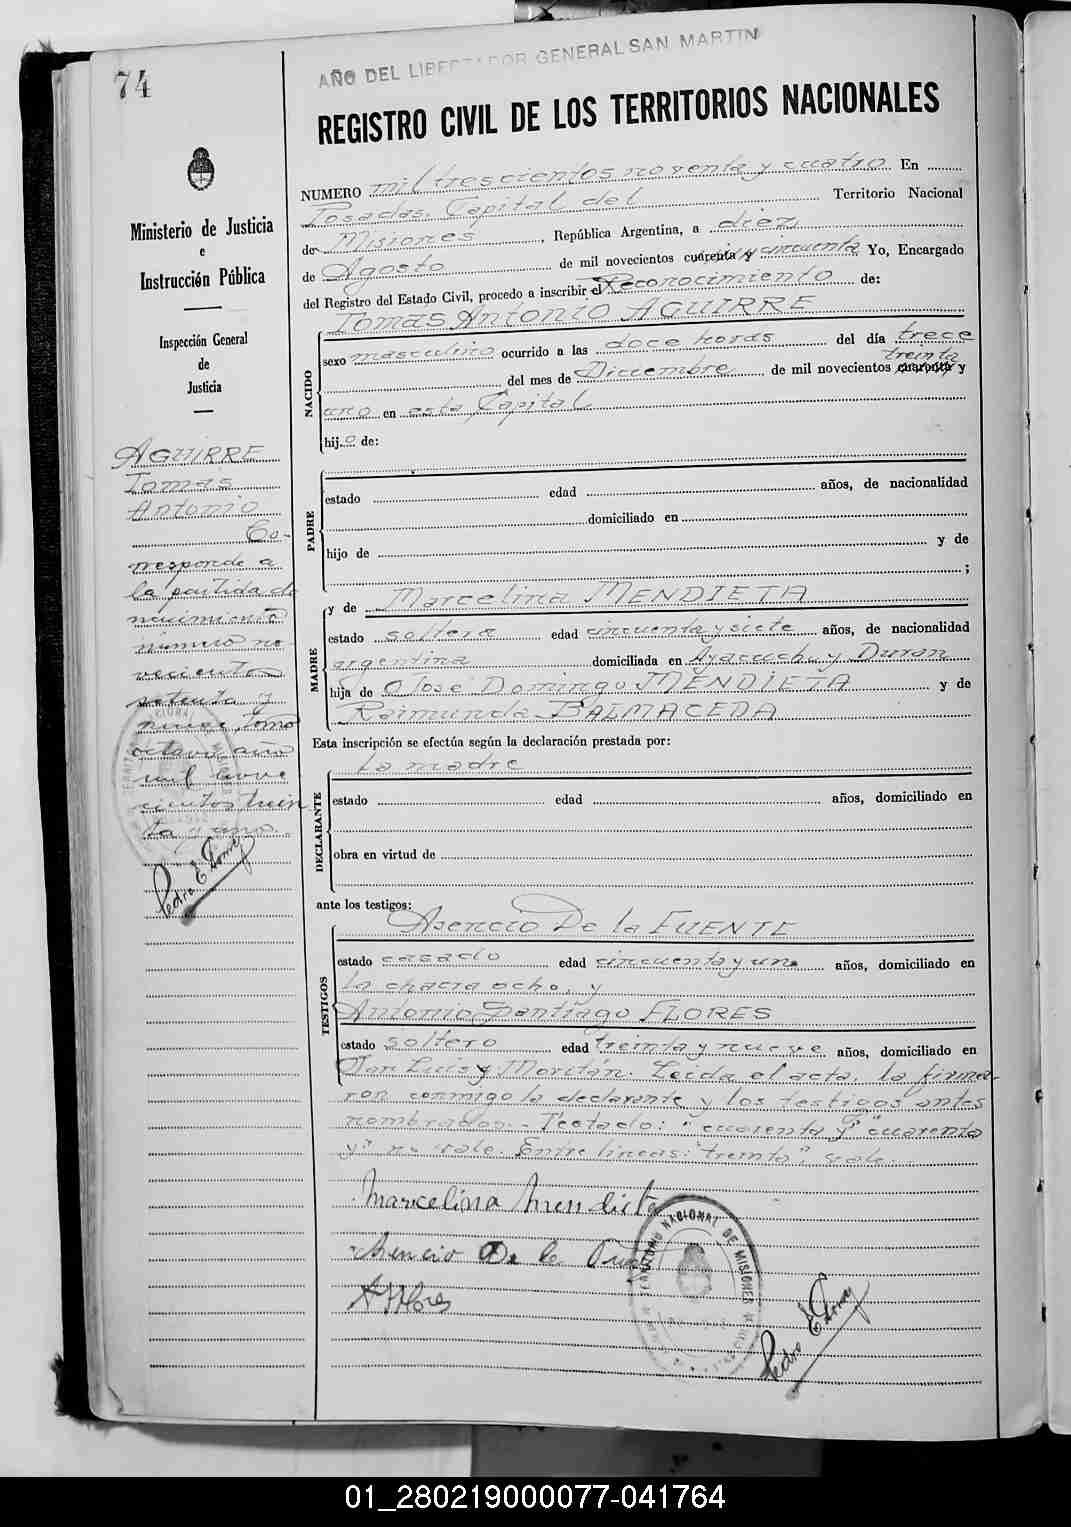 74
AÑO DEL LIBERTADOR GENERAL SAN MARTIN
REGISTRO CIVIL DE LOS TERRITORIOS NACIONALES
Ministerio de Justicia
e
Instrucción Pública
Inspección General
de
Justicia
AGUIRRE
Tomas
Antonio
Co-
rresponde a
la partida de
nacimiento
número no
vecientos
setenta y
nueve, tomo
octavo, año
mil nove
cientos trein
ta y uno.
Pedro E.
NUMERO mil trescientos noventa y cuatro En
Posadas, Capital del Territorio Nacional
de Misiones, República Argentina, a diez
de Agosto de mil novecientos cuarenta y cincuenta Yo, Encargado
del Registro del Estado Civil, procedo a inscribir el Reconocimiento de:
Tomas Antonio AGUIRRE
NACIDO
sexo masculino ocurrido a las doce horas del día trece
treinta
del mes de Diciembre de mil novecientos cuarenta y
uno en esta Capital
hijo de:
PADRE
estado edad años, de nacionalidad
domiciliado en
hijo de y de
;
MADRE
y de Marcelina MENDIETA
estado soltera edad cincuenta y siete años, de nacionalidad
argentina domiciliada en Ayacucho y Duran
hija de José Domingo MENDIETA y de
Raimunda BALMACEDA
Esta inscripción se efectúa según la declaración prestada por:
La madre
DECLARANTE
estado edad años, domiciliado en
obra en virtud de
ante los testigos:
Asencio De la FUENTE
TESTIGOS
estado casado edad cincuenta y uno años, domiciliado en
la chacra ocho, y
Antonio Santiago FLORES
estado soltero edad treinta y nueve años, domiciliado en
San Luis y Moritán. Leida el acta, la firma-
ron conmigo la declarante y los testigos antes
nombrados.- Testado: "cuarenta y" "cuarenta
y" no vale. Entre lineas: "treinta": vale.
Marcelina Mendieta
Asencio De la Fuente
A S Flores
NACIONAL DE MISIONES
Pedro E.
01_280219000077-041764